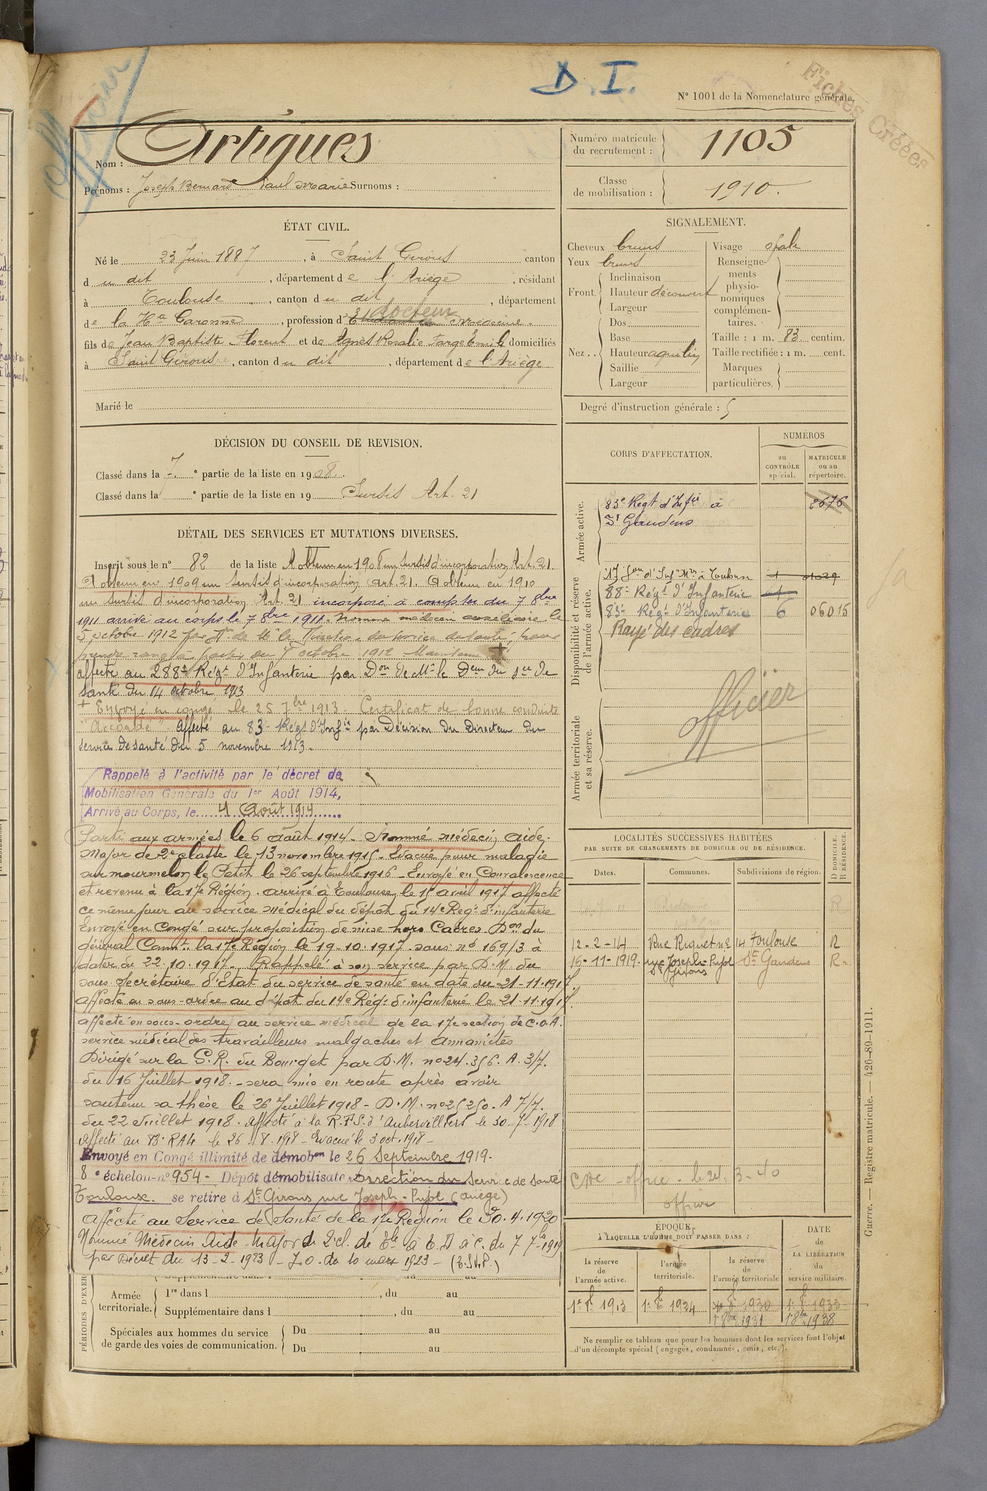 D. I.
N° 1001 de la Nomenclature générale.
Fiches Créées
Officier
Nom : Artigues
Prénoms : Joseph Bernard Paul Marie Surnoms :
Numéro matricule du recrutement : 1105
Classe de mobilisation : 1910.
ÉTAT CIVIL.
Né le 23 Juin 1887, à Saint Girons canton
du dit, département de l'Ariège, résidant
à Toulouse, canton du dit, département
de la Hte Garonne, profession d' Etudiant en docteur médecine.
fils de Jean Baptiste Florent et de Agnès Rosalie Farge Emilie domiciliés
à Saint Girons, canton du dit, département de l'Ariège
Marié le
SIGNALEMENT.
Cheveux bruns
Yeux bruns
Front Inclinaison
Hauteur découvert
Largeur
Nez Dos
Base
Hauteur aquilin
Saillie
Largeur
Visage ovale
Renseignements physionomiques complémentaires.
Taille : 1 m. 83 centim.
Taille rectifiée : 1 m. cent.
Marques particulières.
Degré d'instruction générale : 5
DÉCISION DU CONSEIL DE REVISION.
Classé dans la 7e partie de la liste en 1908.
Classé dans la e partie de la liste en 19 Sursis Art. 21
DÉTAIL DES SERVICES ET MUTATIONS DIVERSES.
Inscrit sous le n° 82 de la liste A obtenu en 1908 un sursis d'incorporation Art. 21.
A obtenu en 1909 un sursis d'incorporation Art 21. A obtenu en 1910
un sursis d'incorporation Art. 21 incorporé à compter du 7 8bre
1911 arrivé au corps le 7 8bre 1911. Nommé médecin auxiliaire le
5 octobre 1912 par de M. le Directeur du service de santé, pour
prendre rang à partir du octobre 1912 Maintenu
affecté au 288e Régt d'Infanterie par Don de Mr le Deur du sce de
santé du 14 octobre 1913
+ Envoyé en congé le 25 7bre 1913. Certificat de bonne conduite
"Accordé" affecté au 83e Régt d'Infie par Décision du Directeur du
service de santé du 5 novembre 1913.
Rappelé à l'activité par le décret de
Mobilisation Générale du 1er Août 1914,
Arrivé au Corps, le 4 Août 1914
Parti aux armées le 6 août 1914. Nommé Médecin Aide-
Major de 2e classe le 13 novembre 1915. Evacué pour maladie
au mourmelon le Petit le 26 septembre 1916. Envoyé en Convalescence
et revenu à la 17e Région. arrivé à Toulouse le 1er avril 1917 affecté
ce même jour au service médical du dépôt du 14e Regt d'infanterie
Envoyé en Congé sur proposition de mise hors Cadres Don du
Général Commt la 17e Région le 19.10.1917. sous n° 169/3 à
dater du 22.10.1917. Rappelé à son service par D.M. du
sous secrétaire d'Etat du service de santé en date du 21-11-1917
affecté en sous-ordre au dépôt du 14e Régt d'infanterie le 21.11.1917.
affecté en sous-ordre au service médical de la 17e section de C.O.A.
service médical des travailleurs malgaches et annamites
Dirigé sur la G.R. du Bourget par D.M. n° 24.356. A. 3/7.
du 16 Juillet 1918. - sera mis en route après avoir
soutenu sa thèse le 26 Juillet 1918 - D.M. n° 25250. A 7/7.
du 22 Juillet 1918. affecté à la R.P.S. d'Aubervilliers le 30-7-1918
affecté au le 26 8.1918 - Evacué le 3 oct. 1918 -
Envoyé en Congé illimité de démobon le 26 Septembre 1919.
8e échelon n° 954 - Dépôt démobilisateur Direction du Service de santé
Toulouse. se retire à St Girons rue Joseph-Pujol (ariège)
Affecté au Service de Santé de la 17e Région le 30.4.1920
Nommé Médecin Aide Major de 2 cl. de à T.D à c. du 7 7bre 1919
par Décret du 13-2-1923 - J.O. du 10 mars 1923 -
CORPS D'AFFECTATION.
NUMÉROS
au CONTRÔLE spécial.
MATRICULE ou au répertoire.
Armée active.
83e Régt d'Infie à St Gaudens 2676
Disponibilité et réserve de l'armée active.
88e Régt d'Infanterie
83e Régt d'Infanterie 6 06015
Rayé des cadres
Armée territoriale et sa réserve.
officier
LOCALITÉS SUCCESSIVES HABITÉES
PAR SUITE DE CHANGEMENTS DE DOMICILE OU DE RÉSIDENCE.
Dates. Communes. Subdivisions de région. D DOMICILE. R RÉSIDENCE.
12-2-14 Rue Riquet n° 14 Toulouse R
16-11-1919. rue Joseph-Pujol St Girons St Gaudens R-
officier
ÉPOQUE
À LAQUELLE L'HOMME DOIT PASSER DANS :
la réserve de l'armée active.
l'armée territoriale.
la réserve de l'armée territoriale
DATE de LA LIBÉRATION du service militaire.
1er 8bre 1913
PÉRIODES D'EXER
Supplémentaire dans l
Armée territoriale. 1re dans l , du au
Supplémentaire dans l , du au
Spéciales aux hommes du service de garde des voies de communication. Du au
Du au
Ne remplir ce tableau que pour les hommes dont les services font l'objet
d'un décompte spécial (engagés, condamnés, omis, etc.).
Guerre. — Registre matricule. — 426-89-1911.